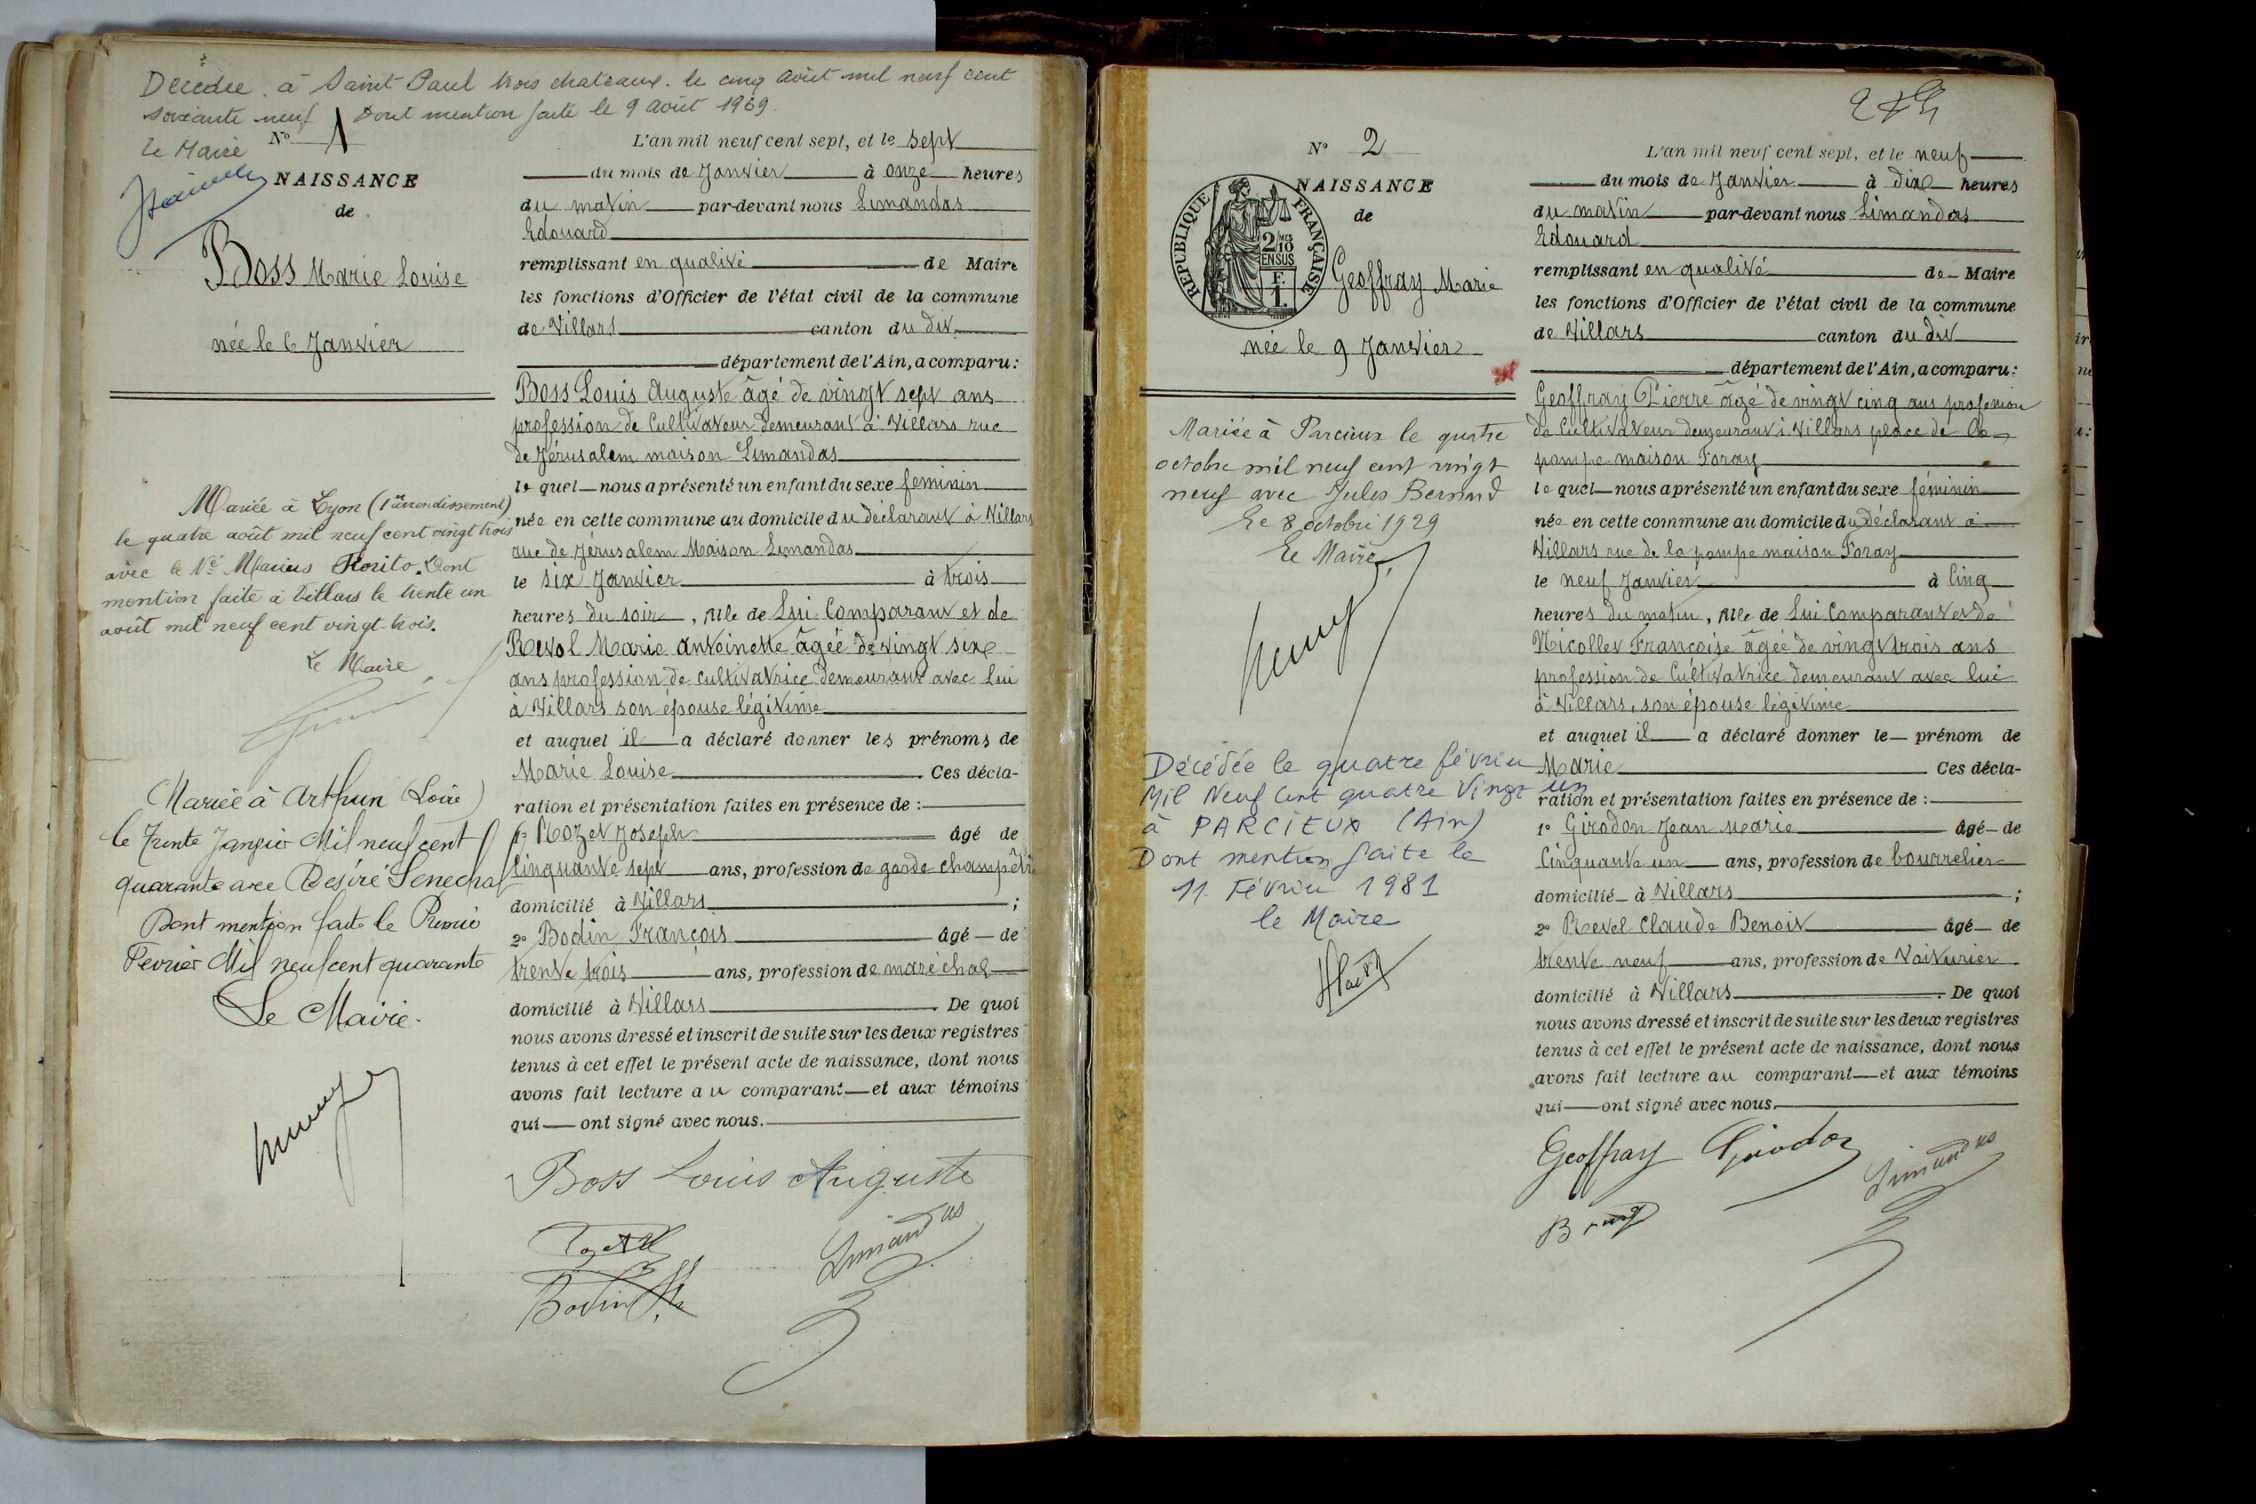 Décédée à Saint Paul trois chateaux. le cinq août mil neuf cent
soixante neuf Dont mention faite le 9 août 1969.
le Maire
N° 1
NAISSANCE
de
Boss Marie Louise
née le 6 Janvier
Mariée à Lyon (1er arrondissement)
le quatre août mil neuf cent vingt trois
avec le Né Marius Dont
mention faite à Villars le trente un
août mil neuf cent vingt-trois.
Le Maire
Mariée à Arthun (Loire)
le Trente Janvier Mil neuf cent
quarante avec Désiré Senechal
Dont mention faite le Premier
Fevrier Mil neuf cent quarante
Le Maire.
L'an mil neuf cent sept, et le sept
du mois de Janvier à onze heures
du matin par-devant nous Limandas
Edouard
remplissant en qualité de Maire
les fonctions d'Officier de l'état civil de la commune
de Villars canton du dit
département de l'Ain, a comparu:
Boss Louis Auguste âgé de vingt sept ans
profession de Cultivateur demeurant à Villars rue
de Jérusalem maison Limandas
le quel nous a présenté un enfant du sexe feminin
née en cette commune au domicile du déclarant à Villars
rue de Jérusalem Maison Limandas
le six Janvier à trois
heures du soir, fille de Lui Comparant et de
Revol Marie Antoinette âgée de vingt six
ans profession de Cultivatrice demeurant avec lui
à Villars son épouse légitime
et auquel il a déclaré donner les prénoms de
Marie Louise Ces décla-
ration et présentation faites en présence de :
1° Rozet Joseph âgé de
Cinquante sept ans, profession de garde-champêtre
domicilié à Villars ;
2° Bodin François âgé de
trente trois ans, profession de maréchal
domicilié à Villars. De quoi
nous avons dressé et inscrit de suite sur les deux registres
tenus à cet effet le présent acte de naissance, dont nous
avons fait lecture au comparant et aux témoins
qui ont signé avec nous.
Boss Louis Auguste
Limandas
Bodin
N° 2
NAISSANCE
de
REPUBLIQUE FRANÇAISE
2/10 MES
EN SUS
F.
1.
Geoffray Marie
née le 9 Janvier
Mariée à Parcieux le quatre
octobre mil neuf cent vingt
neuf avec Jules Bernard
Le 8 octobre 1929
Le Maire,
Décédée le quatre février
Mil Neuf Cent quatre Vingt un
à PARCIEUX (Ain)
Dont mention faite le
11 Février 1981
le Maire
L'an mil neuf cent sept, et le neuf
du mois de Janvier à dix heures
du matin par-devant nous Limandas
Edouard
remplissant en qualité de Maire
les fonctions d'Officier de l'état civil de la commune
de Villars canton du dit
département de l'Ain, a comparu:
Geoffray Pierre âgé de vingt cinq ans profession
de Cultivateur demeurant à Villars place de la
pompe maison Foray
le quel nous a présenté un enfant du sexe féminin
née en cette commune au domicile du déclarant à
Villars rue de la pompe maison Foray
le neuf Janvier à Cinq
heures du matin, fille de Lui Comparant et de
Nicollet Françoise âgée de vingt trois ans
profession de Cultivatrice demeurant avec lui
à Villars, son épouse légitime
et auquel il a déclaré donner le prénom de
Marie Ces décla-
ration et présentation faites en présence de :
1° Girodon Jean Marie âgé de
Cinquante un ans, profession de bourrelier
domicilié à Villars ;
2° Revel Claude Benoit âgé de
trente neuf ans, profession de Voiturier
domicilié à Villars. De quoi
nous avons dressé et inscrit de suite sur les deux registres
tenus à cet effet le présent acte de naissance, dont nous
avons fait lecture au comparant et aux témoins
qui ont signé avec nous.
Geoffray Girodon
Limandas